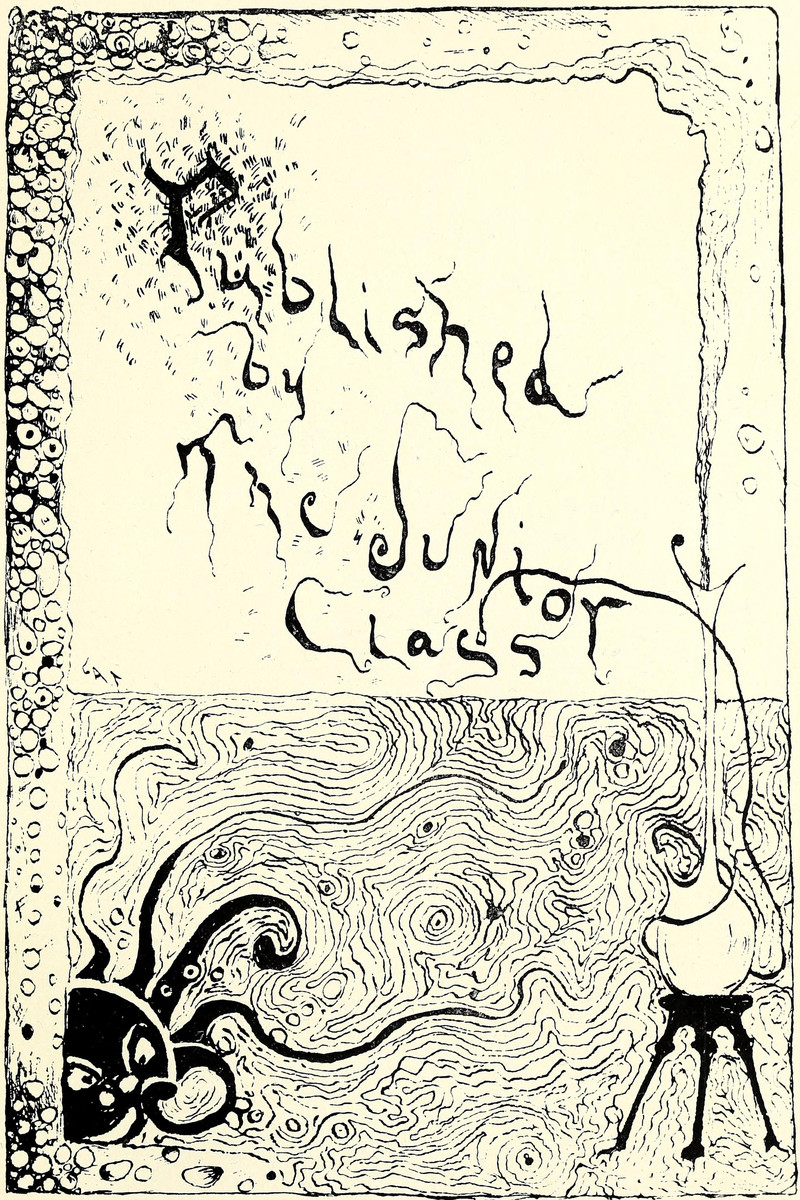 Published
by
The Junior
Class